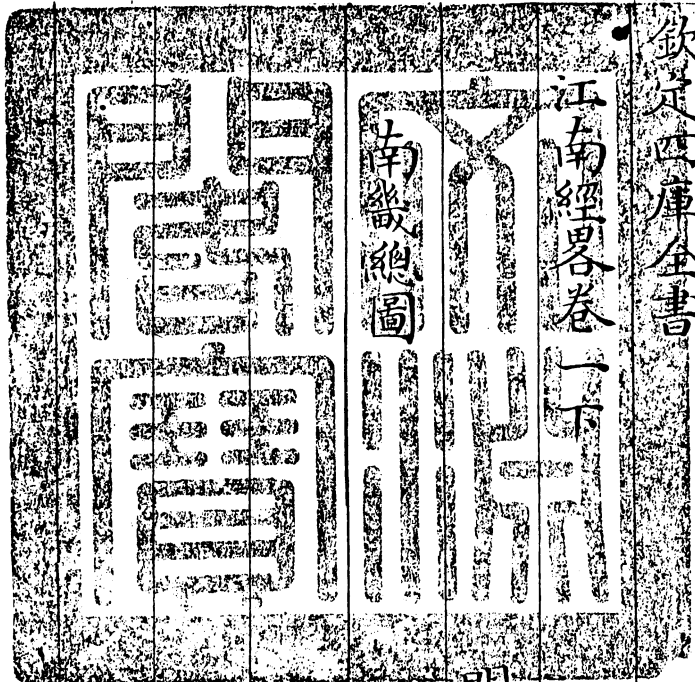 欽定四庫全書
江南經畧卷一下
南畿總圖
文淵閣寶